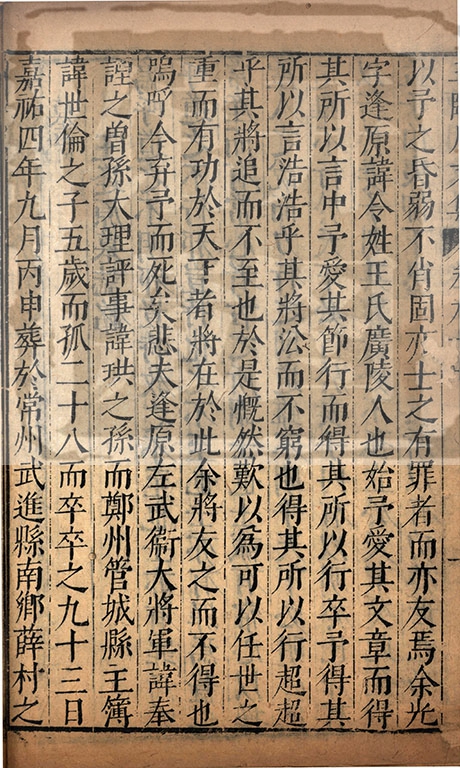 以予之昏弱不肖固亦士之有罪者而亦友焉余光
字逢原諱令姓王氏廣陵人也始予愛其文章而得
其所以言中予愛其節行而得其所以行卒予得其
所以言浩浩乎其將公而不窮也得其所以行超超
乎其將追而不至也於是慨然歎以為可以任世之
重而有功於天下者將在於此余將友之而不得也
嗚呼今弃予而死矣悲夫逢原左武衛大將軍諱奉
諲之曽孫大理評事諱珙之孫而鄭州管城縣王簿
諱世倫之子五歲而孤二十八而卒卒之九十三日
嘉祐四年九月丙申葬於常州武進縣南鄉薛村之